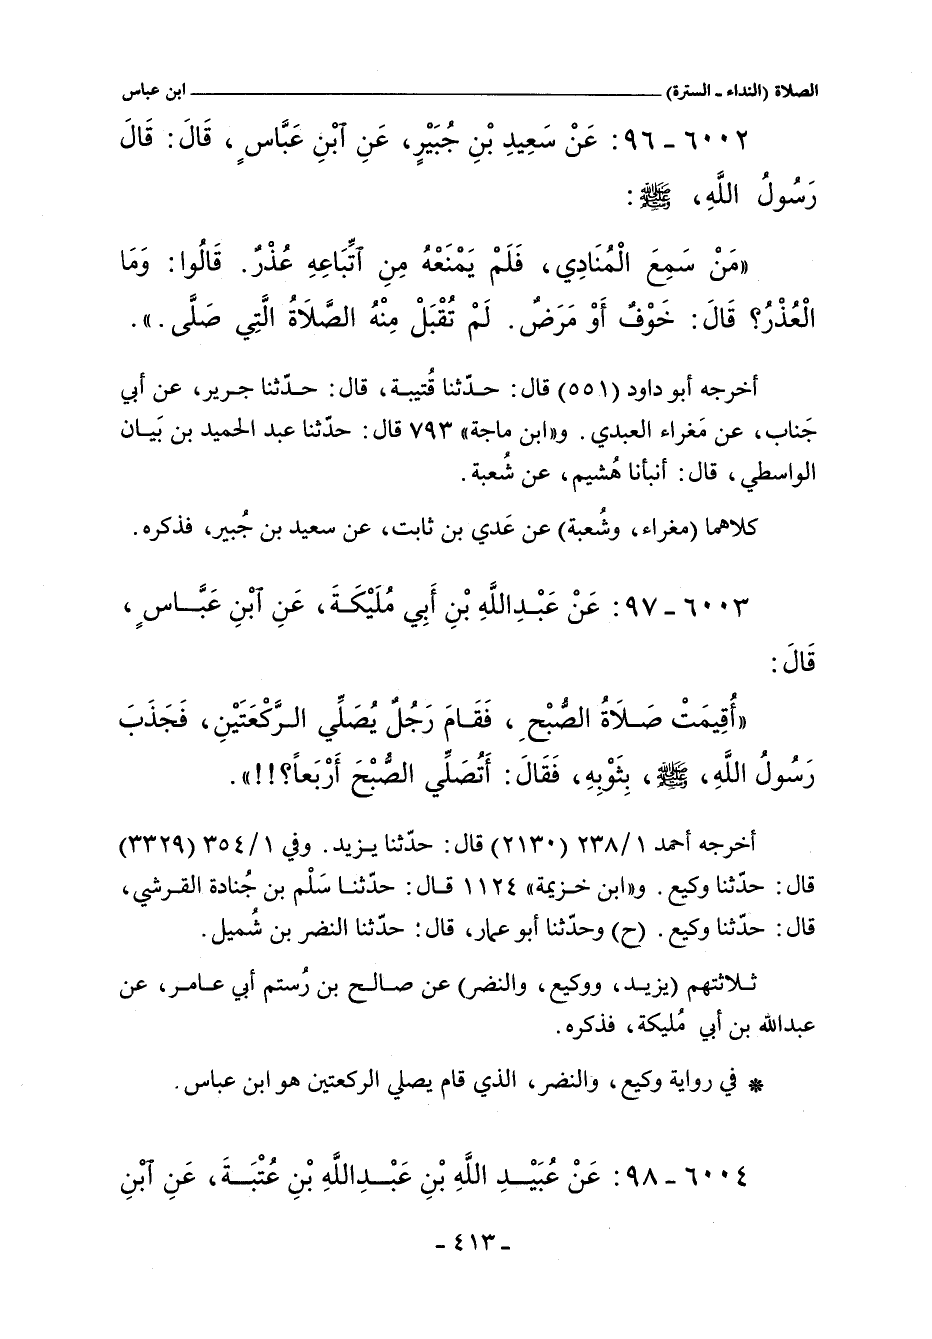 الصلاة (النداء - السترة) ابن عباس
٦٠٠٢ - ٩٦: عَنْ سَعِيدِ بْنِ جُبَيْرٍ، عَنِ ٱبْنِ عَبَّاسٍ، قَالَ: قَالَ
رَسُولُ اللَّهِ، ﷺ:
«مَنْ سَمِعَ الْمُنَادِي، فَلَمْ يَمْنَعْهُ مِنِ ٱتِّبَاعِهِ عُذْرٌ. قَالُوا: وَمَا
الْعُذْرُ؟ قَالَ: خَوْفٌ أَوْ مَرَضٌ. لَمْ تُقْبَلْ مِنْهُ الصَّلَاةُ الَّتِي صَلَّى.».
أخرجه أبو داود (٥٥١) قال: حدّثنا قُتيبة، قال: حدّثنا جرير، عن أبي
جَناب، عن مَغراء العبدي. و«ابن ماجة» ٧٩٣ قال: حدّثنا عبد الحميد بن بَيان
الواسطي، قال: أنبأنا هُشيم، عن شُعبة.
كلاهما (مغراء، وشُعبة) عن عَدي بن ثابت، عن سعيد بن جُبير، فذكره.
٦٠٠٣ - ٩٧: عَنْ عَبْدِاللَّهِ بْنِ أَبِي مُلَيْكَةَ، عَنِ ٱبْنِ عَبَّاسٍ،
قَالَ:
«أُقِيمَتْ صَلَاةُ الصُّبْحِ، فَقَامَ رَجُلٌ يُصَلِّي الرَّكْعَتَيْنِ، فَجَذَبَ
رَسُولُ اللَّهِ، ﷺ، بِثَوْبِهِ، فَقَالَ: أَتُصَلِّي الصُّبْحَ أَرْبَعاً؟!!».
أخرجه أحمد ٢٣٨/١ (٢١٣٠) قال: حدّثنا يزيد. وفي ٣٥٤/١ (٣٣٢٩)
قال: حدّثنا وكيع. و«ابن خزيمة» ١١٢٤ قال: حدّثنا سَلْم بن جُنادة القرشي،
قال: حدّثنا وكيع. (ح) وحدّثنا أبو عمار، قال: حدّثنا النضر بن شُميل.
ثلاثتهم (يزيد، ووكيع، والنضر) عن صالح بن رُستم أبي عامر، عن
عبدالله بن أبي مُليكة، فذكره.
* في رواية وكيع، والنضر، الذي قام يصلي الركعتين هو ابن عباس.
٦٠٠٤ - ٩٨: عَنْ عُبَيْدِ اللَّهِ بْنِ عَبْدِاللَّهِ بْنِ عُتْبَةَ، عَنِ ٱبْنِ
- ٤١٣ -